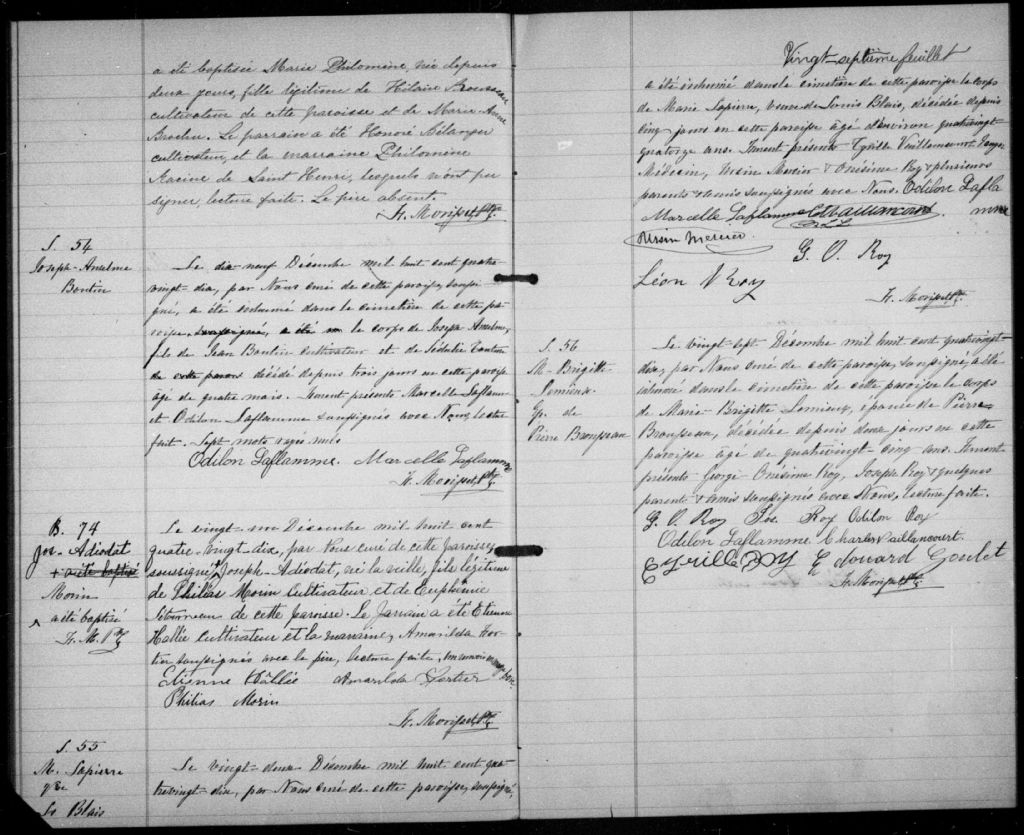 a été baptisée Marie Philomène, née depuis
deux jours, fille légitime de Hilaire Rousseau
cultivateur de cette paroisse et de Marie Anne
Brochu. Le parrain a été Honoré Bélanger
cultivateur, et la marraine Philomène
Racine de Saint Henri, lesquels n'ont pu
signer, lecture faite. Le père absent.
Fr. Morisset, Ptre
S. 54
Joseph-Anselme
Boutin
Le dix neuf Décembre mil huit cent quatre
vingt-dix, par Nous curé de cette paroisse, soussi-
gné, a été inhumé dans le cimetière de cette pa-
roisse, soussigné, a été le corps de Joseph Anselme,
fils de Jean Boutin cultivateur et de Sédulie
de cette paroisse décédé depuis trois jours en cette paroisse
âgé de quatre mois. Furent présents Marcelle Laflamme
et Odilon Laflamme soussignés avec Nous, lecture
faite. Sept mots rayés nuls
Odilon Laflamme. Marcelle Laflamme
Fr. Morisset, Ptre
B. 74
Jos- Adiodat
+ a été baptisé
Morin
^ a été baptisé
Fr. M. Ptre
Le vingt-un Décembre mil huit cent
quatre-vingt-dix, par Nous curé de cette paroisse
soussigné Joseph-Adiodat, né la veille, fils légitime
de Philias Morin cultivateur et de Euphémie
Létourneau de cette paroisse. Le parrain a été Etienne
Hallée cultivateur et la marraine, Amarilda For-
tier soussignés avec le père, lecture faite,
Etienne Hâllée Amarilda Fortier
Philias Morin
Fr. Morisset, Ptre
S. 55
M. Lapierre
Vve
Ls Blais
Le vingt-deux Décembre mil huit cent qua-
trevingt-dix, par Nous curé de cette paroisse, soussigné,
Vingt-septième feuillet
a été inhumé dans le cimetière de cette paroisse le corps
de Marie Lapierre, veuve de Louis Blais, décédée depuis
cinq jours en cette paroisse âgé d'environ quatrevingt
quatorze ans. Furent présents Cyrille Vaillancourt
Médecin, Ursin Mercier & Onésime Roy & plusieurs
parents & amis soussignés avec Nous. Odilon Lafla
mme
Marcelle Laflamme
Ursin Mercier
G. O. Roy
Léon Roy
Fr. Morisset, Ptre
S. 56
M- Brigitte
Lemieux
Ep. de
Pierre Brousseau
Le vingt-sept Décembre mil huit cent quatrevingt-
dix, par Nous curé de cette paroisse, soussigné, a été
inhumé dans le cimetière de cette paroisse le corps
de Marie-Brigitte Lemieux, épouse de Pierre
Brousseau, décédée depuis deux jours en cette
paroisse âgé de quatrevingt-cinq ans. Furent
présents George Onésime Roy, Joseph Roy & quelques
parents & amis soussignés avec Nous, lecture faite.
G. O. Roy Jos. Roy Odilon Roy
Odilon Laflamme Charles Vaillancourt
Cyrille Roy Edouard Goulet
Fr. Morisset Ptre